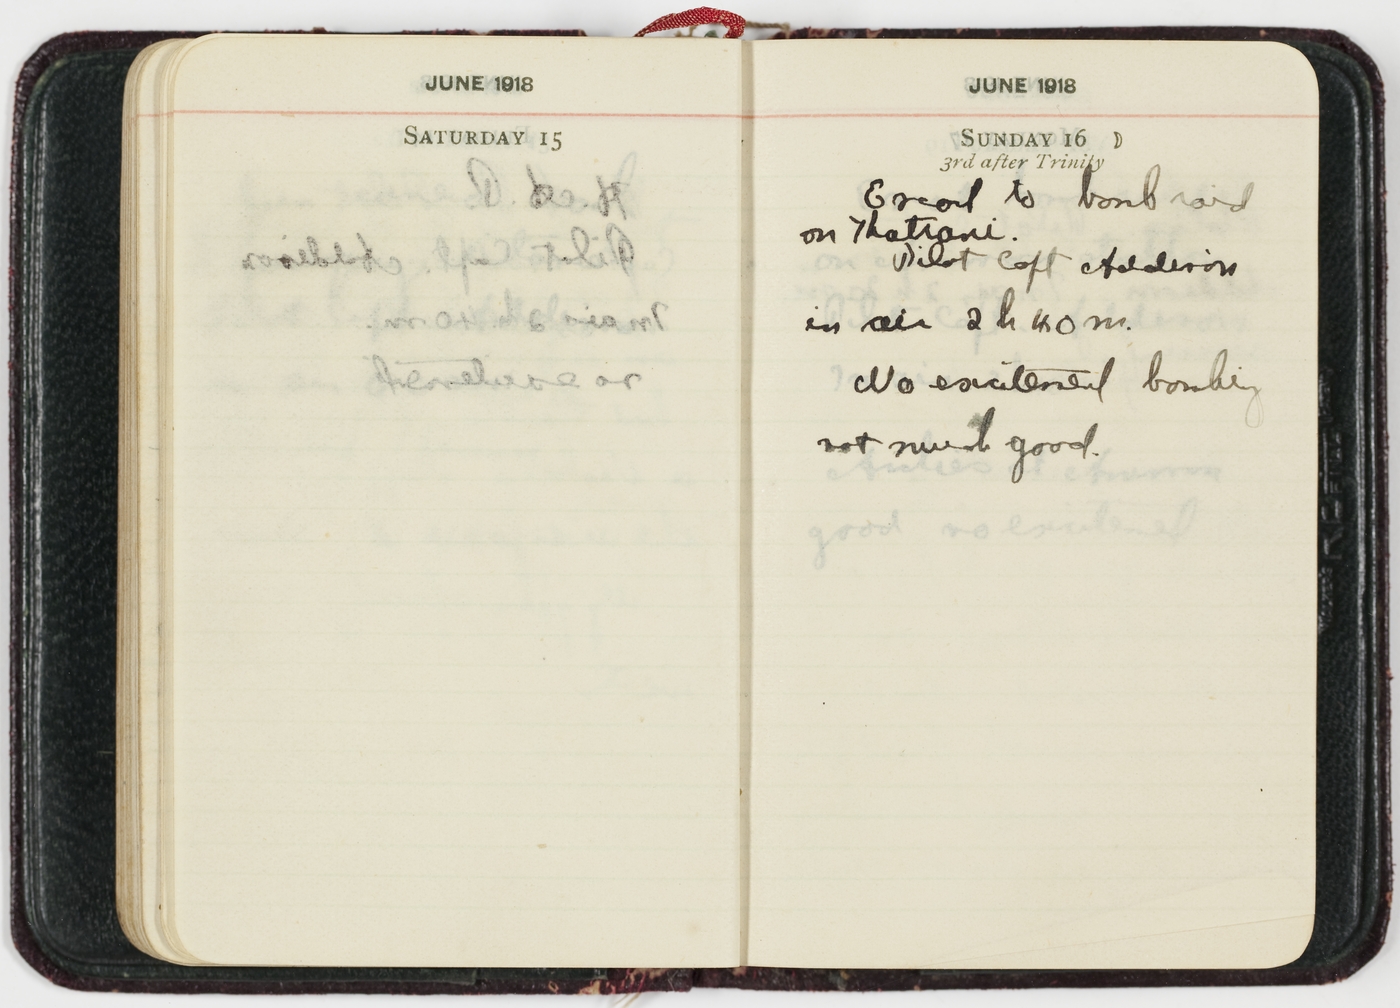 JUNE 1918
SATURDAY 15
JUNE 1918
SUNDAY 16
3rd after Trinity
Escort to bomb raid
on
Pilot Capt Addison
in air 2 h 40 m.
No excitement bombing
not much good.